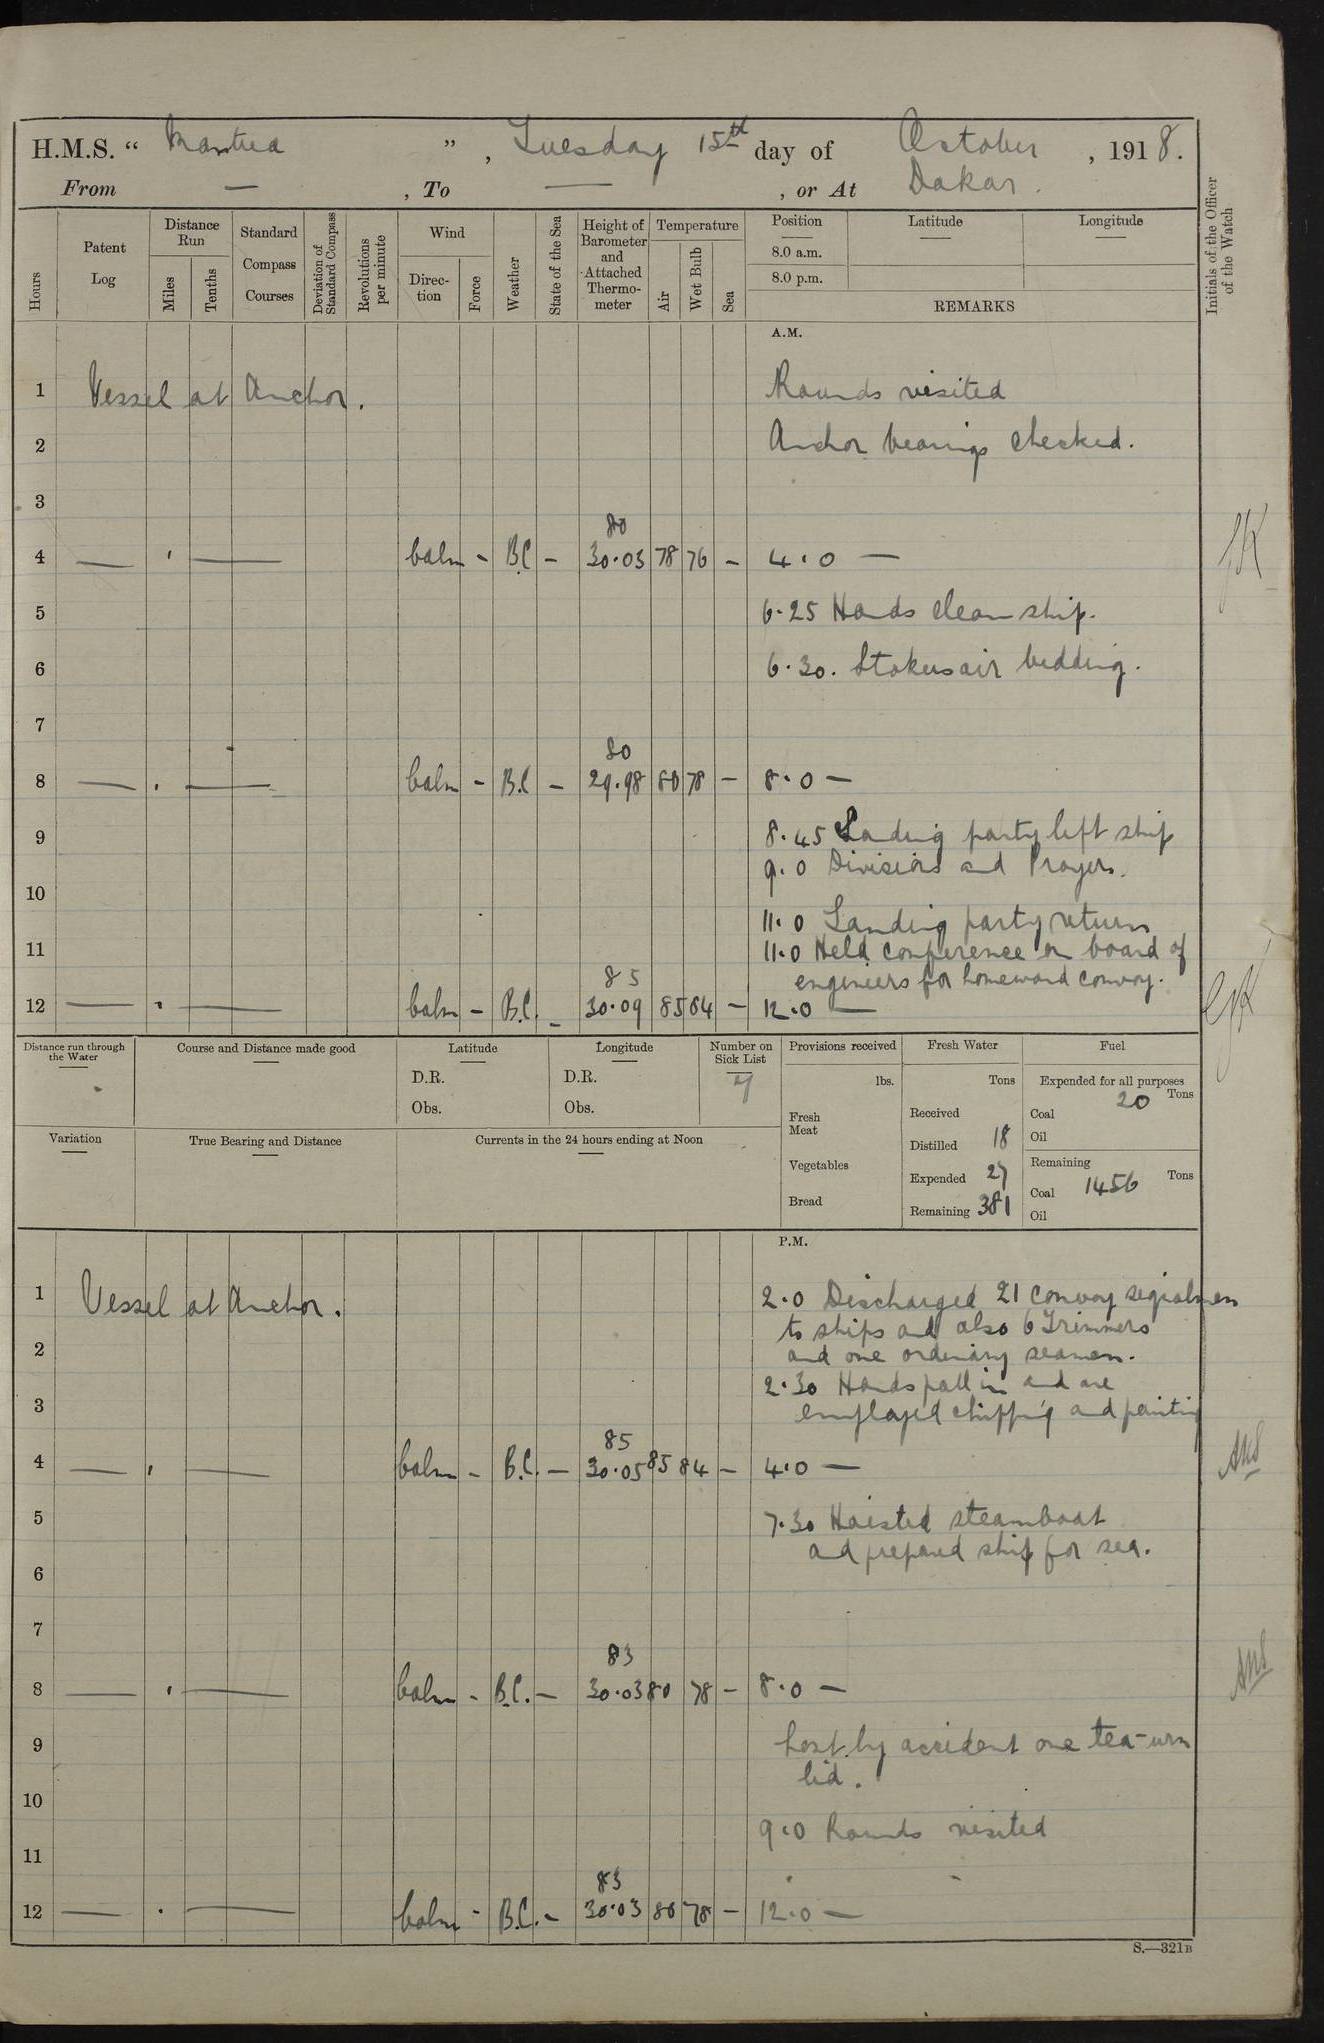 H.M.S. “ Mantua ” , Tuesday 15th day of October , 1918.
From — , To — , or At Dakar.
Hours
Patent Log
Distance Run
Miles
Tenths
Standard Compass Courses
Deviation of Standard Compass
Revolutions per minute
Wind
Direction
Force
Weather
State of the Sea
Height of Barometer and Attached Thermometer
Temperature
Air
Wet Bulb
Sea
Position
Latitude
Longitude
8.0 a.m.
8.0 p.m.
REMARKS
Initials of the Officer of the Watch
A.M.
1 Vessel at Anchor. Rounds visited
2 Anchor bearings checked.
3
80
4 — — Calm - B.C - 30.03 78 76 - 4.0 —
5 6.25 Hands clean ship.
6 6.30. Stokers air bedding.
7
80
8 — — Calm - B.C - 29.98 80 78 - 8.0 —
9 8.45 Landing party left ship
9.0 Divisions and Prayers.
10
11.0 Landing party return
11 11.0 Held conference on board of
85 engineers for homeward convoy.
12 — — Calm - B.C. - 30.09 85 84 - 12.0 —
Distance run through the Water
Course and Distance made good
Latitude
D.R.
Obs.
Longitude
D.R.
Obs.
Number on Sick List
Provisions received
lbs.
Fresh Meat
Vegetables
Bread
Fresh Water
Tons
Received
Distilled 18
Expended 27
Remaining 381
Fuel
Expended for all purposes
Tons
Coal 20
Oil
Remaining
Tons
Coal 1456
Oil
Variation
True Bearing and Distance
Currents in the 24 hours ending at Noon
P.M.
1 Vessel at Anchor. 2.0 Discharged 21 convoy signalmen
to ships and also 6 Trimmers
2 and one ordinary seaman.
2.30 Hands fall in and are
3 employed chipping and painting
85
4 — — Calm - B.C. - 30.05 85 84 - 4.0 —
5 7.30 Hoisted steamboat
and prepared ship for sea.
6
7
83
8 — — Calm - B.C. - 30.03 80 78 - 8.0 —
9 Lost by accident one tea-urn
lid.
10
9.0 Rounds visited
11
83
12 — — Calm - B.C. - 30.03 80 78 - 12.0 —
S.—321B